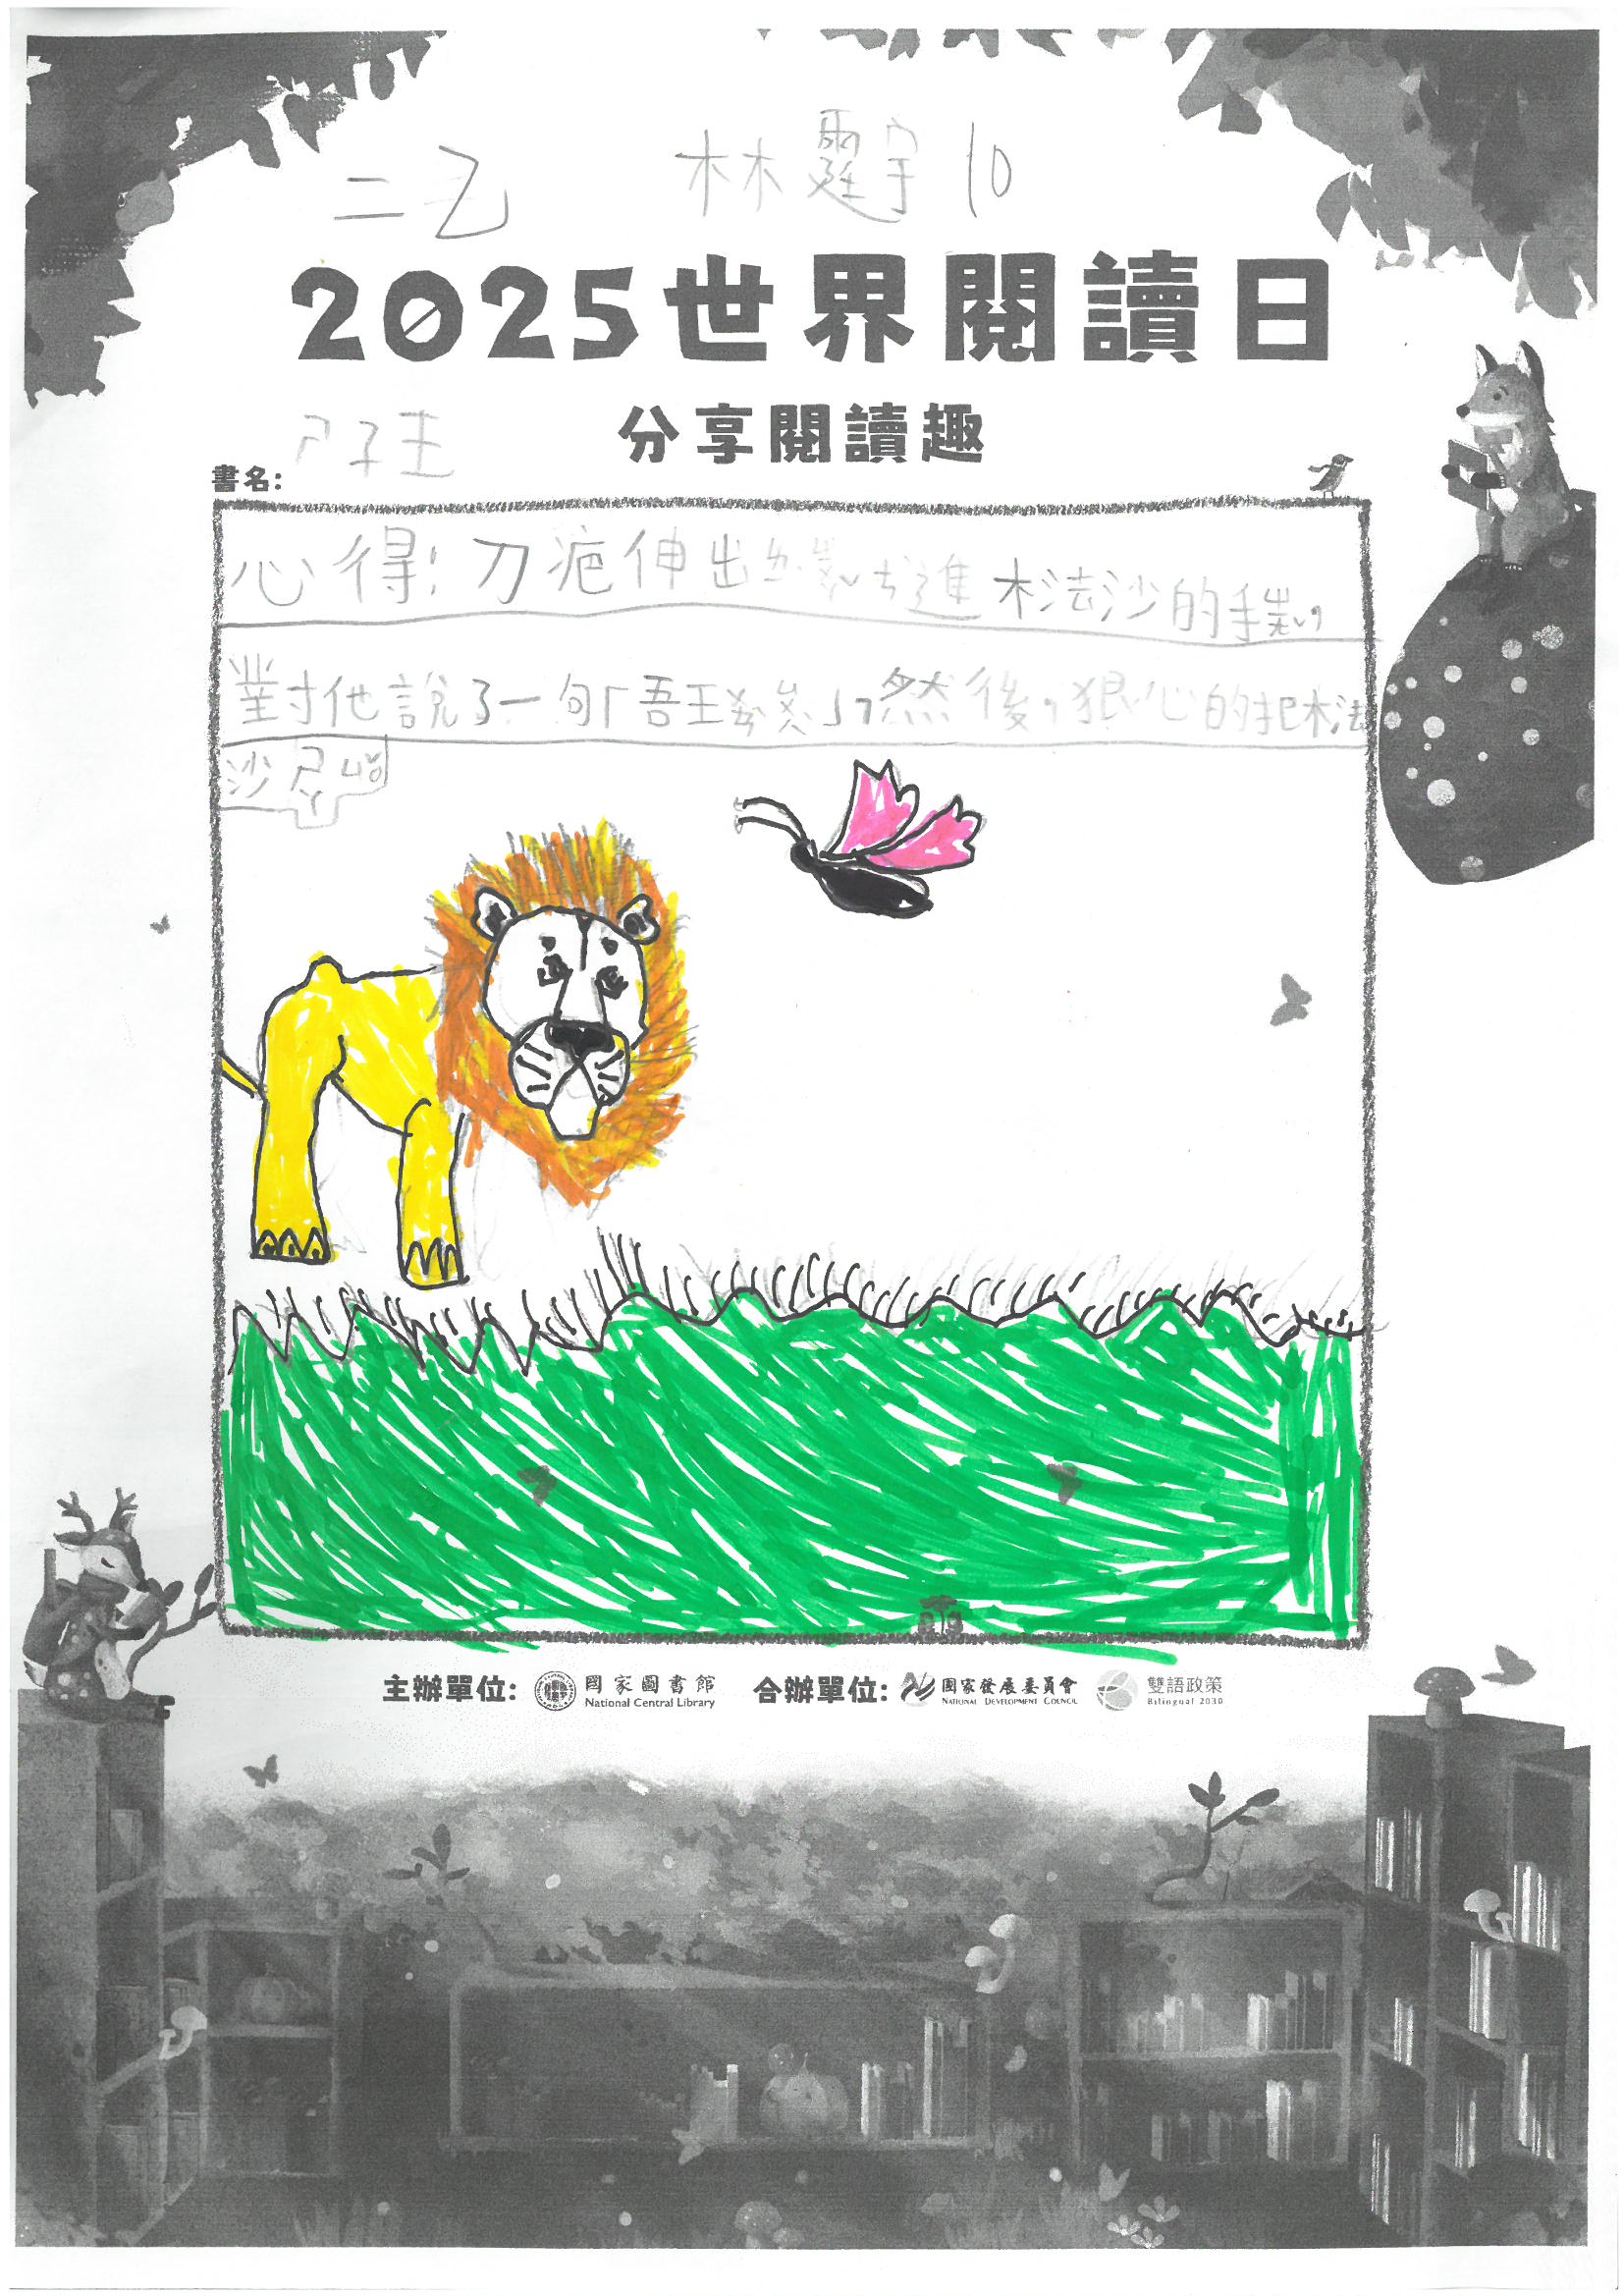 二乙 林霆宇 10
2025世界閱讀日
分享閱讀趣
書名: ㄕ子王
心得:刀疤伸出 進木法沙的手
對他說了一句「吾王萬歲」,然後,狠心的把木法
沙
主辦單位: 國家圖書館 National Central Library 合辦單位: 國家發展委員會 NATIONAL DEVELOPMENT COUNCIL 雙語政策 Bilingual 2030